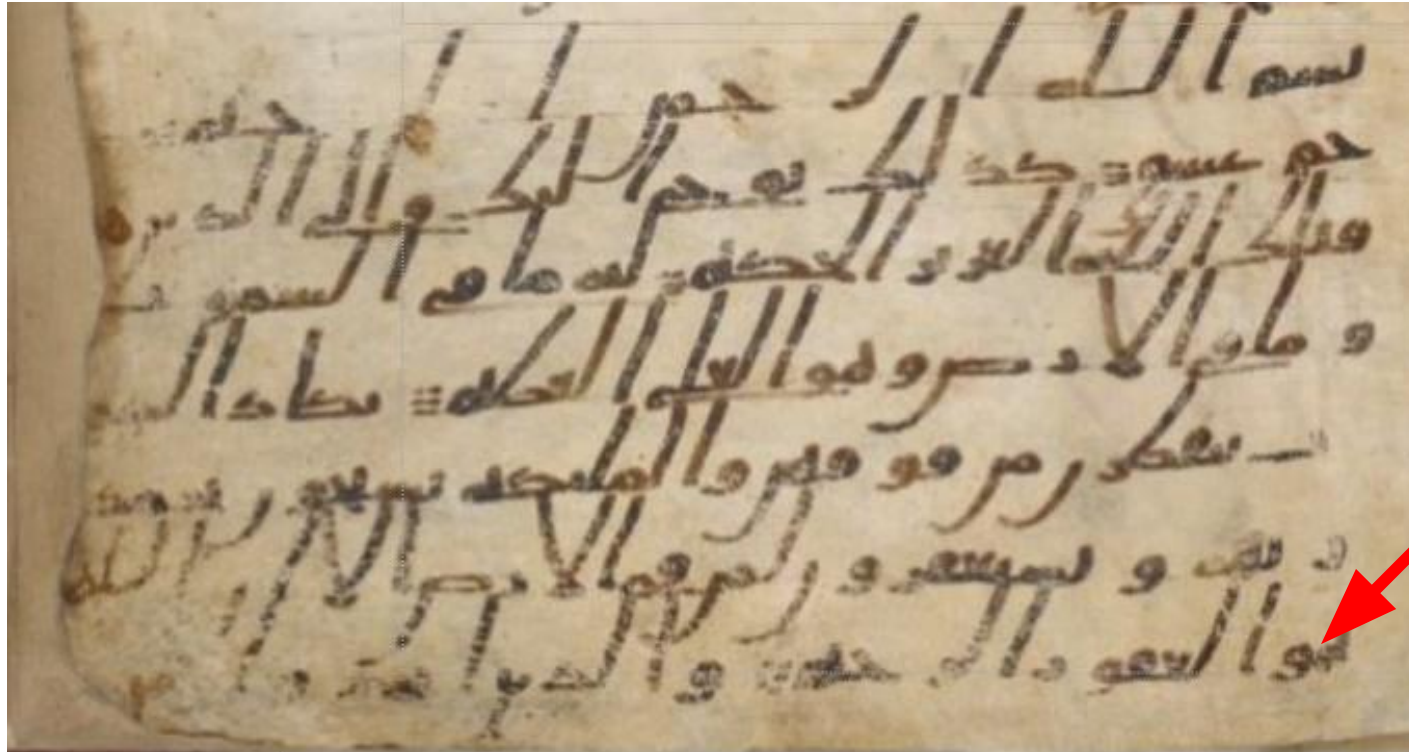 بسم الله الرحمن الرحيم
حم عسق كذلك يوحي اليك والى الذين
قبلك الله العزيز الحكيم له ما في السموت
وما في الارض وهو العلي العظيم تكاد السمو
ت يتفطرن من فوقهن والملئكة يسبحون بحمد
ربهم ويستغفرون لمن في الارض الا ان الله
هو الغفور الرحيم والذين اتخذوا